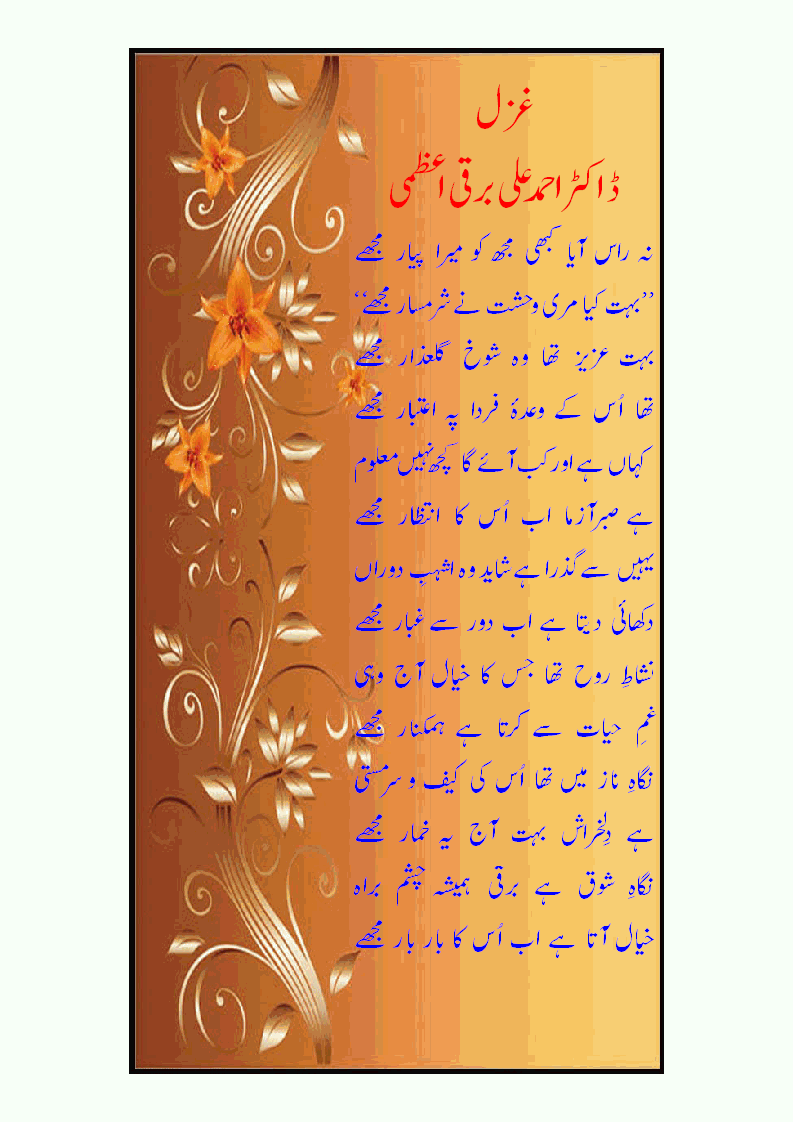 غزل
ڈاکٹر احمد علی برقی اعظمی
نہ راس آیا کبھی مجھ کو میرا پیار مجھے
’’بہت کیا مری وحشت نے شرمسار مجھے‘‘
بہت عزیز تھا وہ شوخ گلعذار مجھے
تھا اُس کے وعدۂ فردا پہ اعتبار مجھے
کہاں ہے اور کب آئے گا کچھ نہیں معلوم
ہے صبرآزما اب اُس کا انتظار مجھے
یہیں سے گذرا ہے شاید وہ اشہبِ دوراں
دکھائی دیتا ہے اب دور سے غبار مجھے
نشاطِ روح تھا جس کا خیال آج وہی
غمِ حیات سے کرتا ہے ہمکنار مجھے
نگاہِ ناز میں تھا اُس کی کیف و سرمستی
ہے دِلخراش بہت آج یہ خمار مجھے
نگاہِ شوق ہے برقی ہمیشہ چشم براہ
خیال آتا ہے اب اُس کا بار بار مجھے